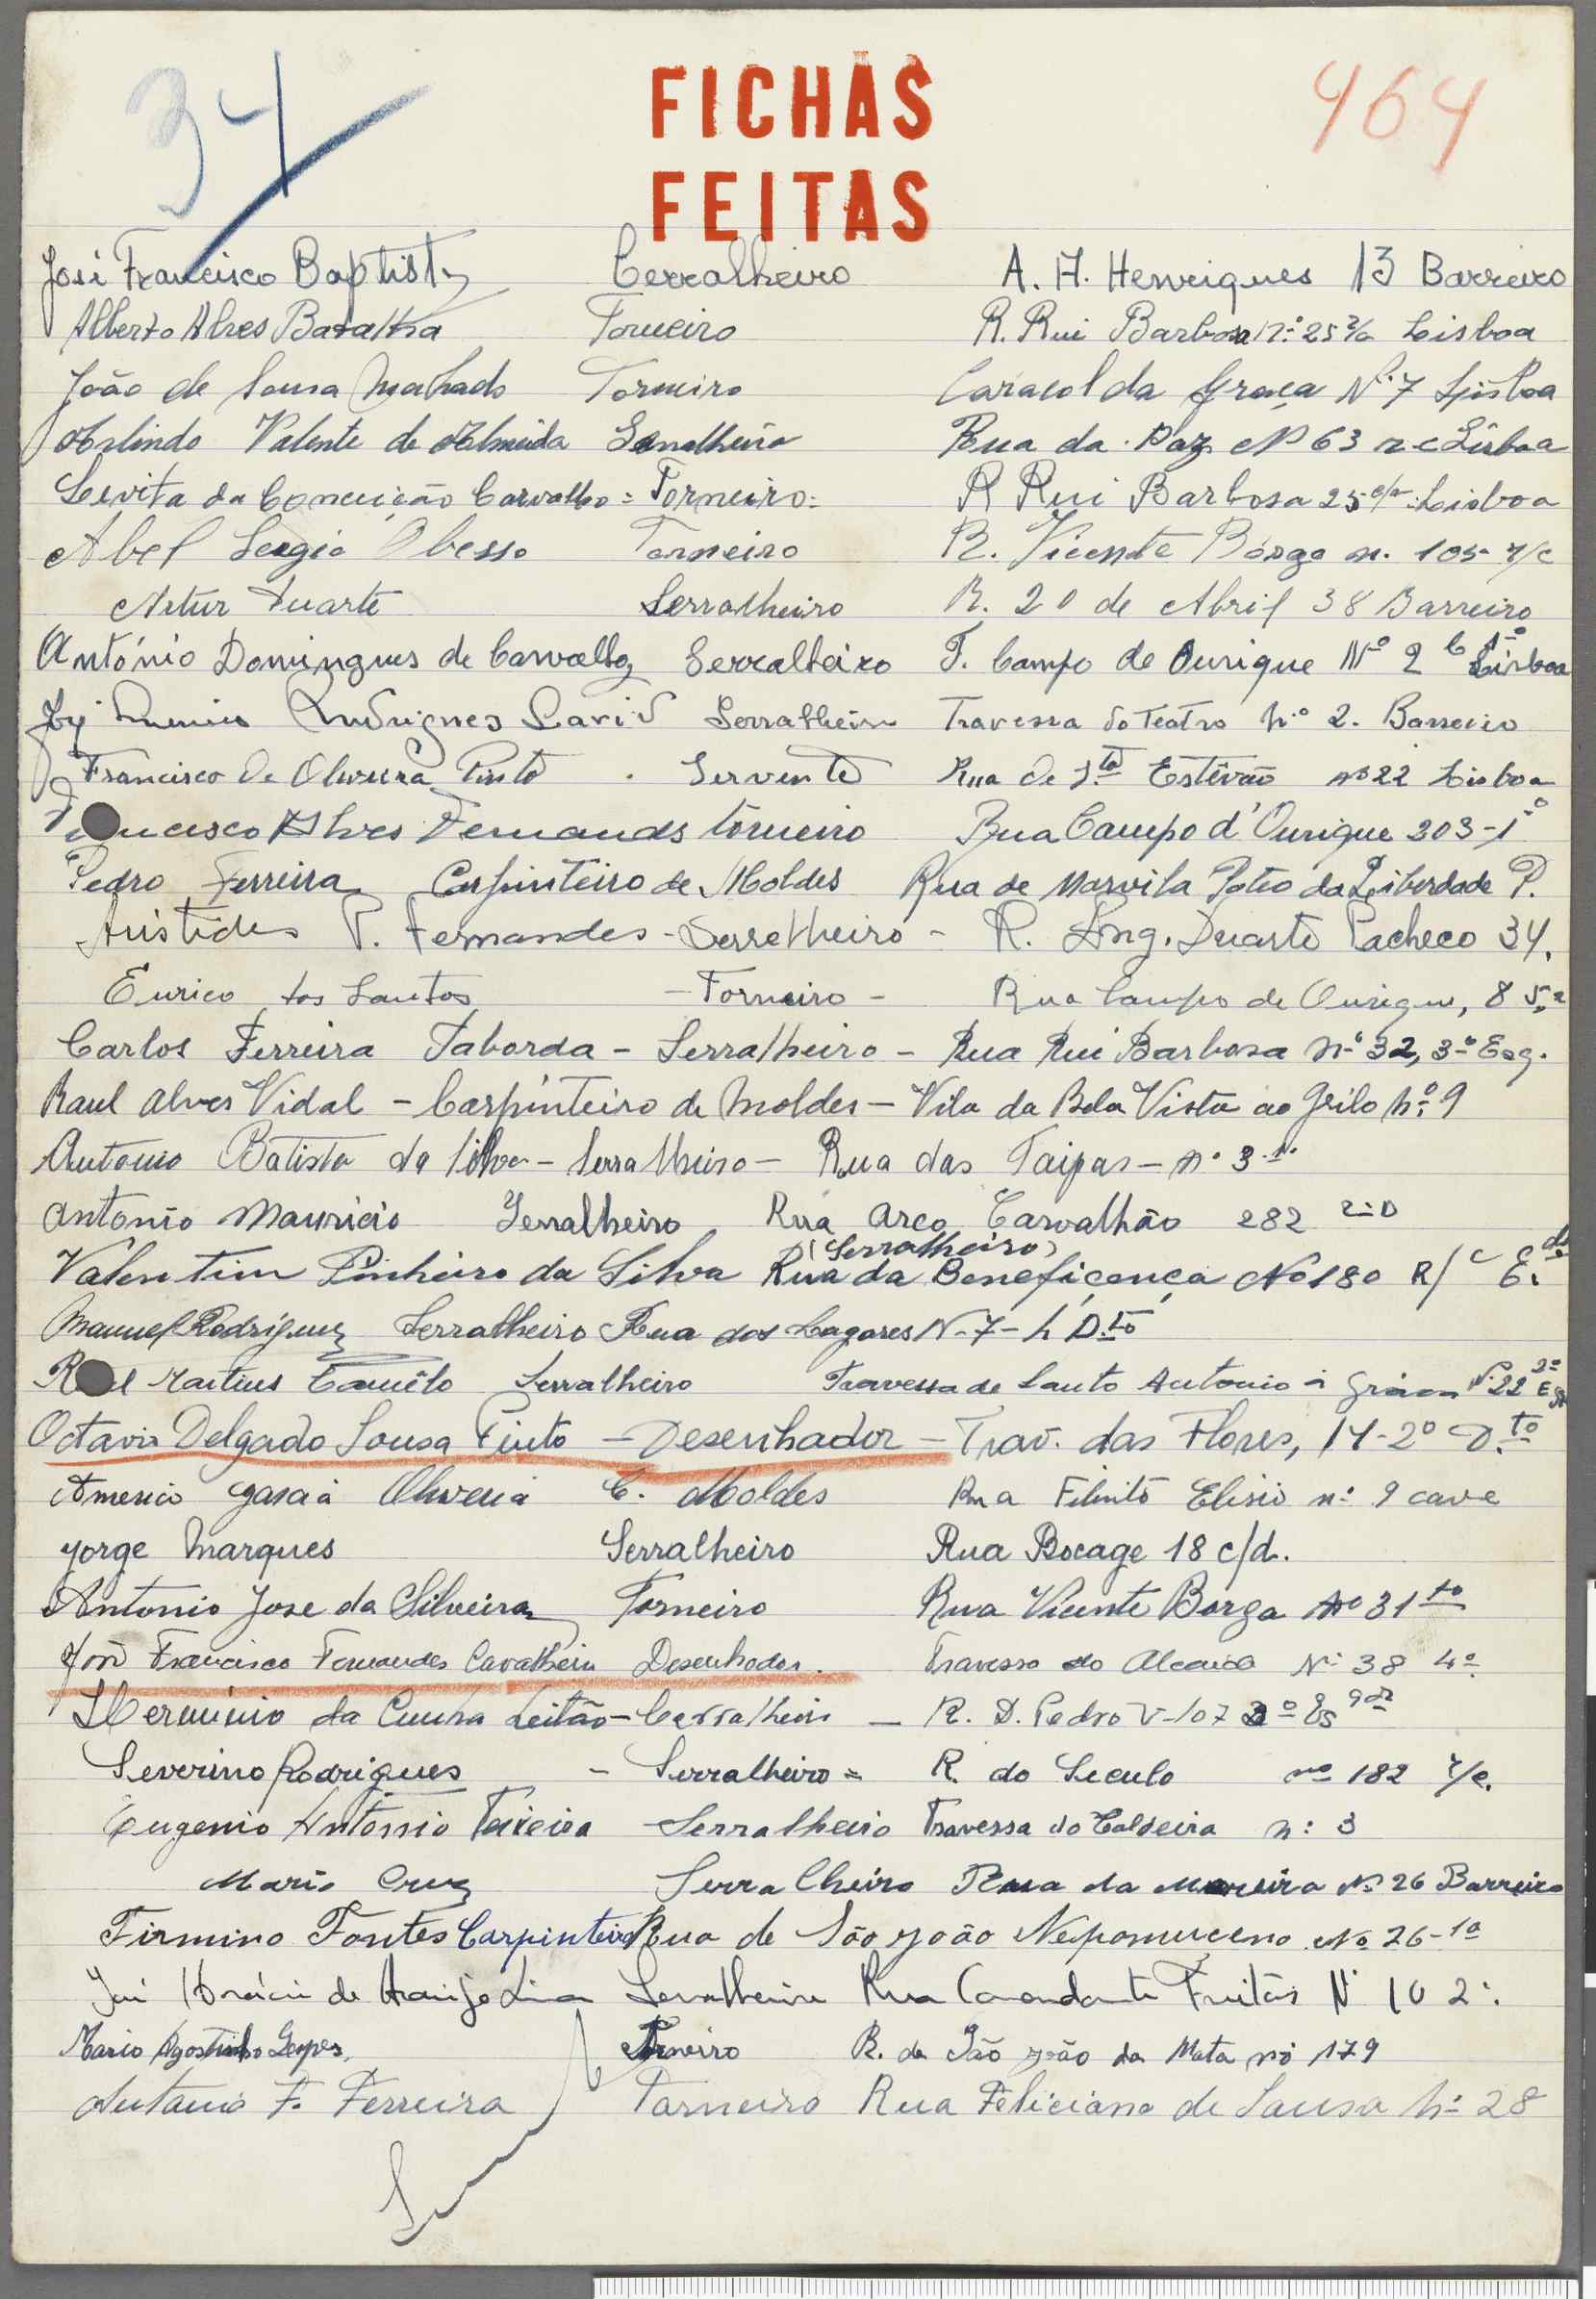 34
FICHAS
464
FEITAS
José Francisco Baptista Cerralheiro A. H. Henriques 13 Barreiro
Alberto Alves Batalha Torneiro R. Rui Barbosa nº 25 Lisboa
João de Sousa Machado Torneiro Caracol da Graça Nº 7 Lisboa
Arlindo Valente de Almeida Serralheiro Rua da Paz Nº 63 r c Lisboa
Levita da Conceição Carvalho = Torneiro = R Rui Barbosa 25 Lisboa
Abel Sergio Obesso Torneiro R. Vicente Borga n. 105 r/c
Artur Duarte Serralheiro R. 20 de Abril 38 Barreiro
António Domingues de Carvalho Serralheiro T. Campo de Ourique Nº 2 Lisboa
Rodrigues David Serralheiro Travessa do Teatro Nº 2. Barreiro
Francisco de Oliveira Pinto Servente Rua de Stº Estêvão nº 22 Lisboa
Alves Fernands tôrneiro Rua Campo d'Ourique 203-1º
Pedro Ferreira Carpinteiro de Moldes Rua de Marvila Pateo da Liberdade P.
Aristides P. Fernandes - Serrelheiro - R. Eng. Duarte Pacheco 34.
Eurico dos Santos - Torneiro - Rua Campo de Ourique, 8
Carlos Ferreira Taborda - Serralheiro - Rua Rui Barbosa nº 32, 3º Esq.
Raul Alves Vidal - Carpinteiro de Moldes - Vila da Bela Vista ao Grilo nº 9
Antonio Batista da Silva - Serralheiro - Rua das Taipas - nº 3
Antonio Mauricio Serralheiro Rua Arco Carvalhão 282 2º D
(Serralheiro)
Valentim Pinheiro da Silva Rua da Beneficença Nº 180 R/C
Manuel Rodrigues Serralheiro Rua dos Lagares N-7- Dtº
Martins Camêlo Serralheiro Travessa de Santo Antonio à Graça Nº 22 2º
Octavio Delgado Sousa Pinto - Desenhador - Trav. das Flores, 14-2º D.to
Americo Garcia Oliveira C. Moldes Rua Filinto Elisio nº 9 cave
Jorge Marques Serralheiro Rua Bocage 18 c/d.
Antonio Jose da Silveira Torneiro Rua Vicente Borga Nº 31
José Francisco Fernandes Cavalheiro Desenhador. Travessa do Alcaide Nº 38 4º
Herminio da Cunha Leitão - Cerralheiro - R. D. Pedro V-107
Severino Rodrigues - Serralheiro = R. do Seculo nº 182 r/c.
Eugenio Antonio Teixeira Serralheiro Travessa do Caldeira n: 3
Mario Cruz Serralheiro Rua da Nº 26 Barreiro
Firmino Fontes Carpinteiro Rua de São João Nepomuceno Nº 26-1º
Horácio de Araujo Lima Serralheiro Rua Comandante Freitas Nº 10 2º
Mario Agostinho Lopes Torneiro R. de São João da Mata nº 179
Antonio F. Ferreira Torneiro Rua Feliciano de Sousa nº 28